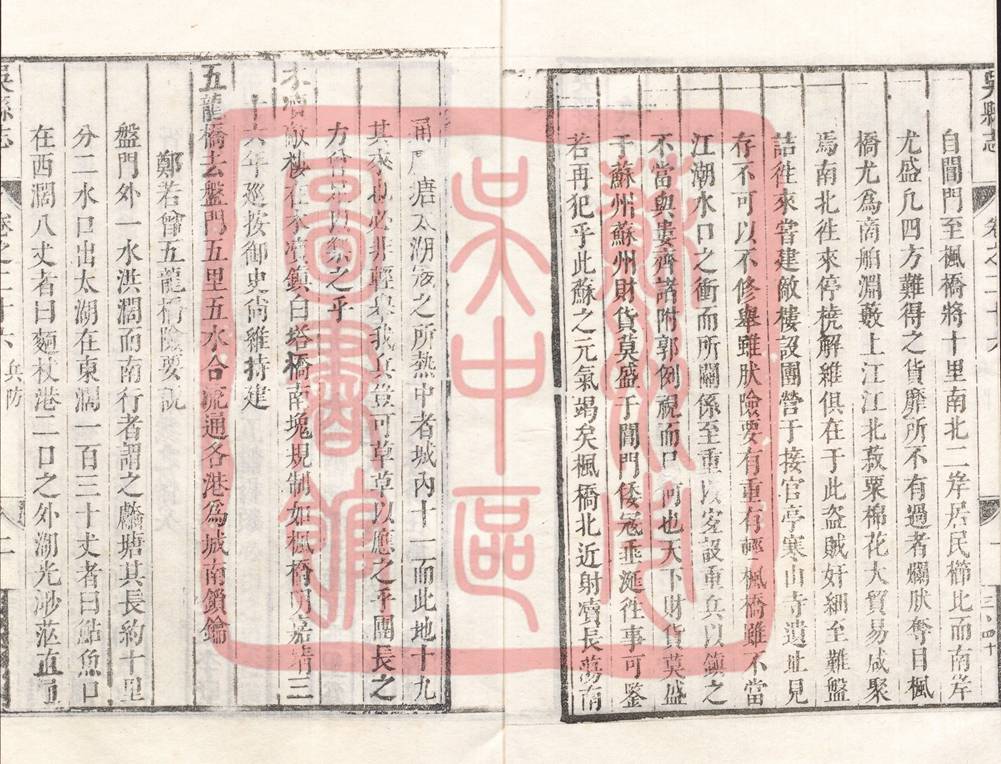 吳縣志
卷之二十六
自閶門至楓橋將十里南北二岸居民櫛比而南岸
尤盛凡四方難得之貨靡所不有過者爛肰奪目楓
橋尤爲商舶淵藪上江江北菽粟棉花大貿易咸聚
焉南北往來停橈解維俱在于此盗賊奸細至難盤
詰徃來嘗建敵樓設團營于接官亭寒山寺遺址見
存不可以不修舉雖肰險要有重有輕楓橋雖不當
江湖水口之衝而所關係至重以宜設重兵以鎮之
不當與婁齊諸附郭例視而口河也天下財貨莫盛
于蘇州蘇州財貨莫盛于閶門倭宼垂涎徃事可鑒
若再犯乎此蘇之元氣竭矣楓橋北近射瀆長蕩南
通 唐太湖宼之所熱中者城內十一而此地十九
其來也必非輕舉我兵豈可草草以應之乎團長之
方曾足以禦之乎
木瀆敵樓在木瀆鎮白塔橋南堍規制如楓橋明嘉靖三
十六年巡按御史尚維持建
五龍橋去盤門五里五水合流通各港爲城南鎖鑰
鄭若曾五龍橋險要說
盤門外一水洪濶而南行者謂之蠡塘其長約十里
分二水口出太湖在東濶一百三十丈者曰鮎魚口
在西濶八丈者曰麵杖港二口之外湖光渺茫直通
吳縣志
卷之二十六 兵防
二
蘇州市
吳中區
圖書館